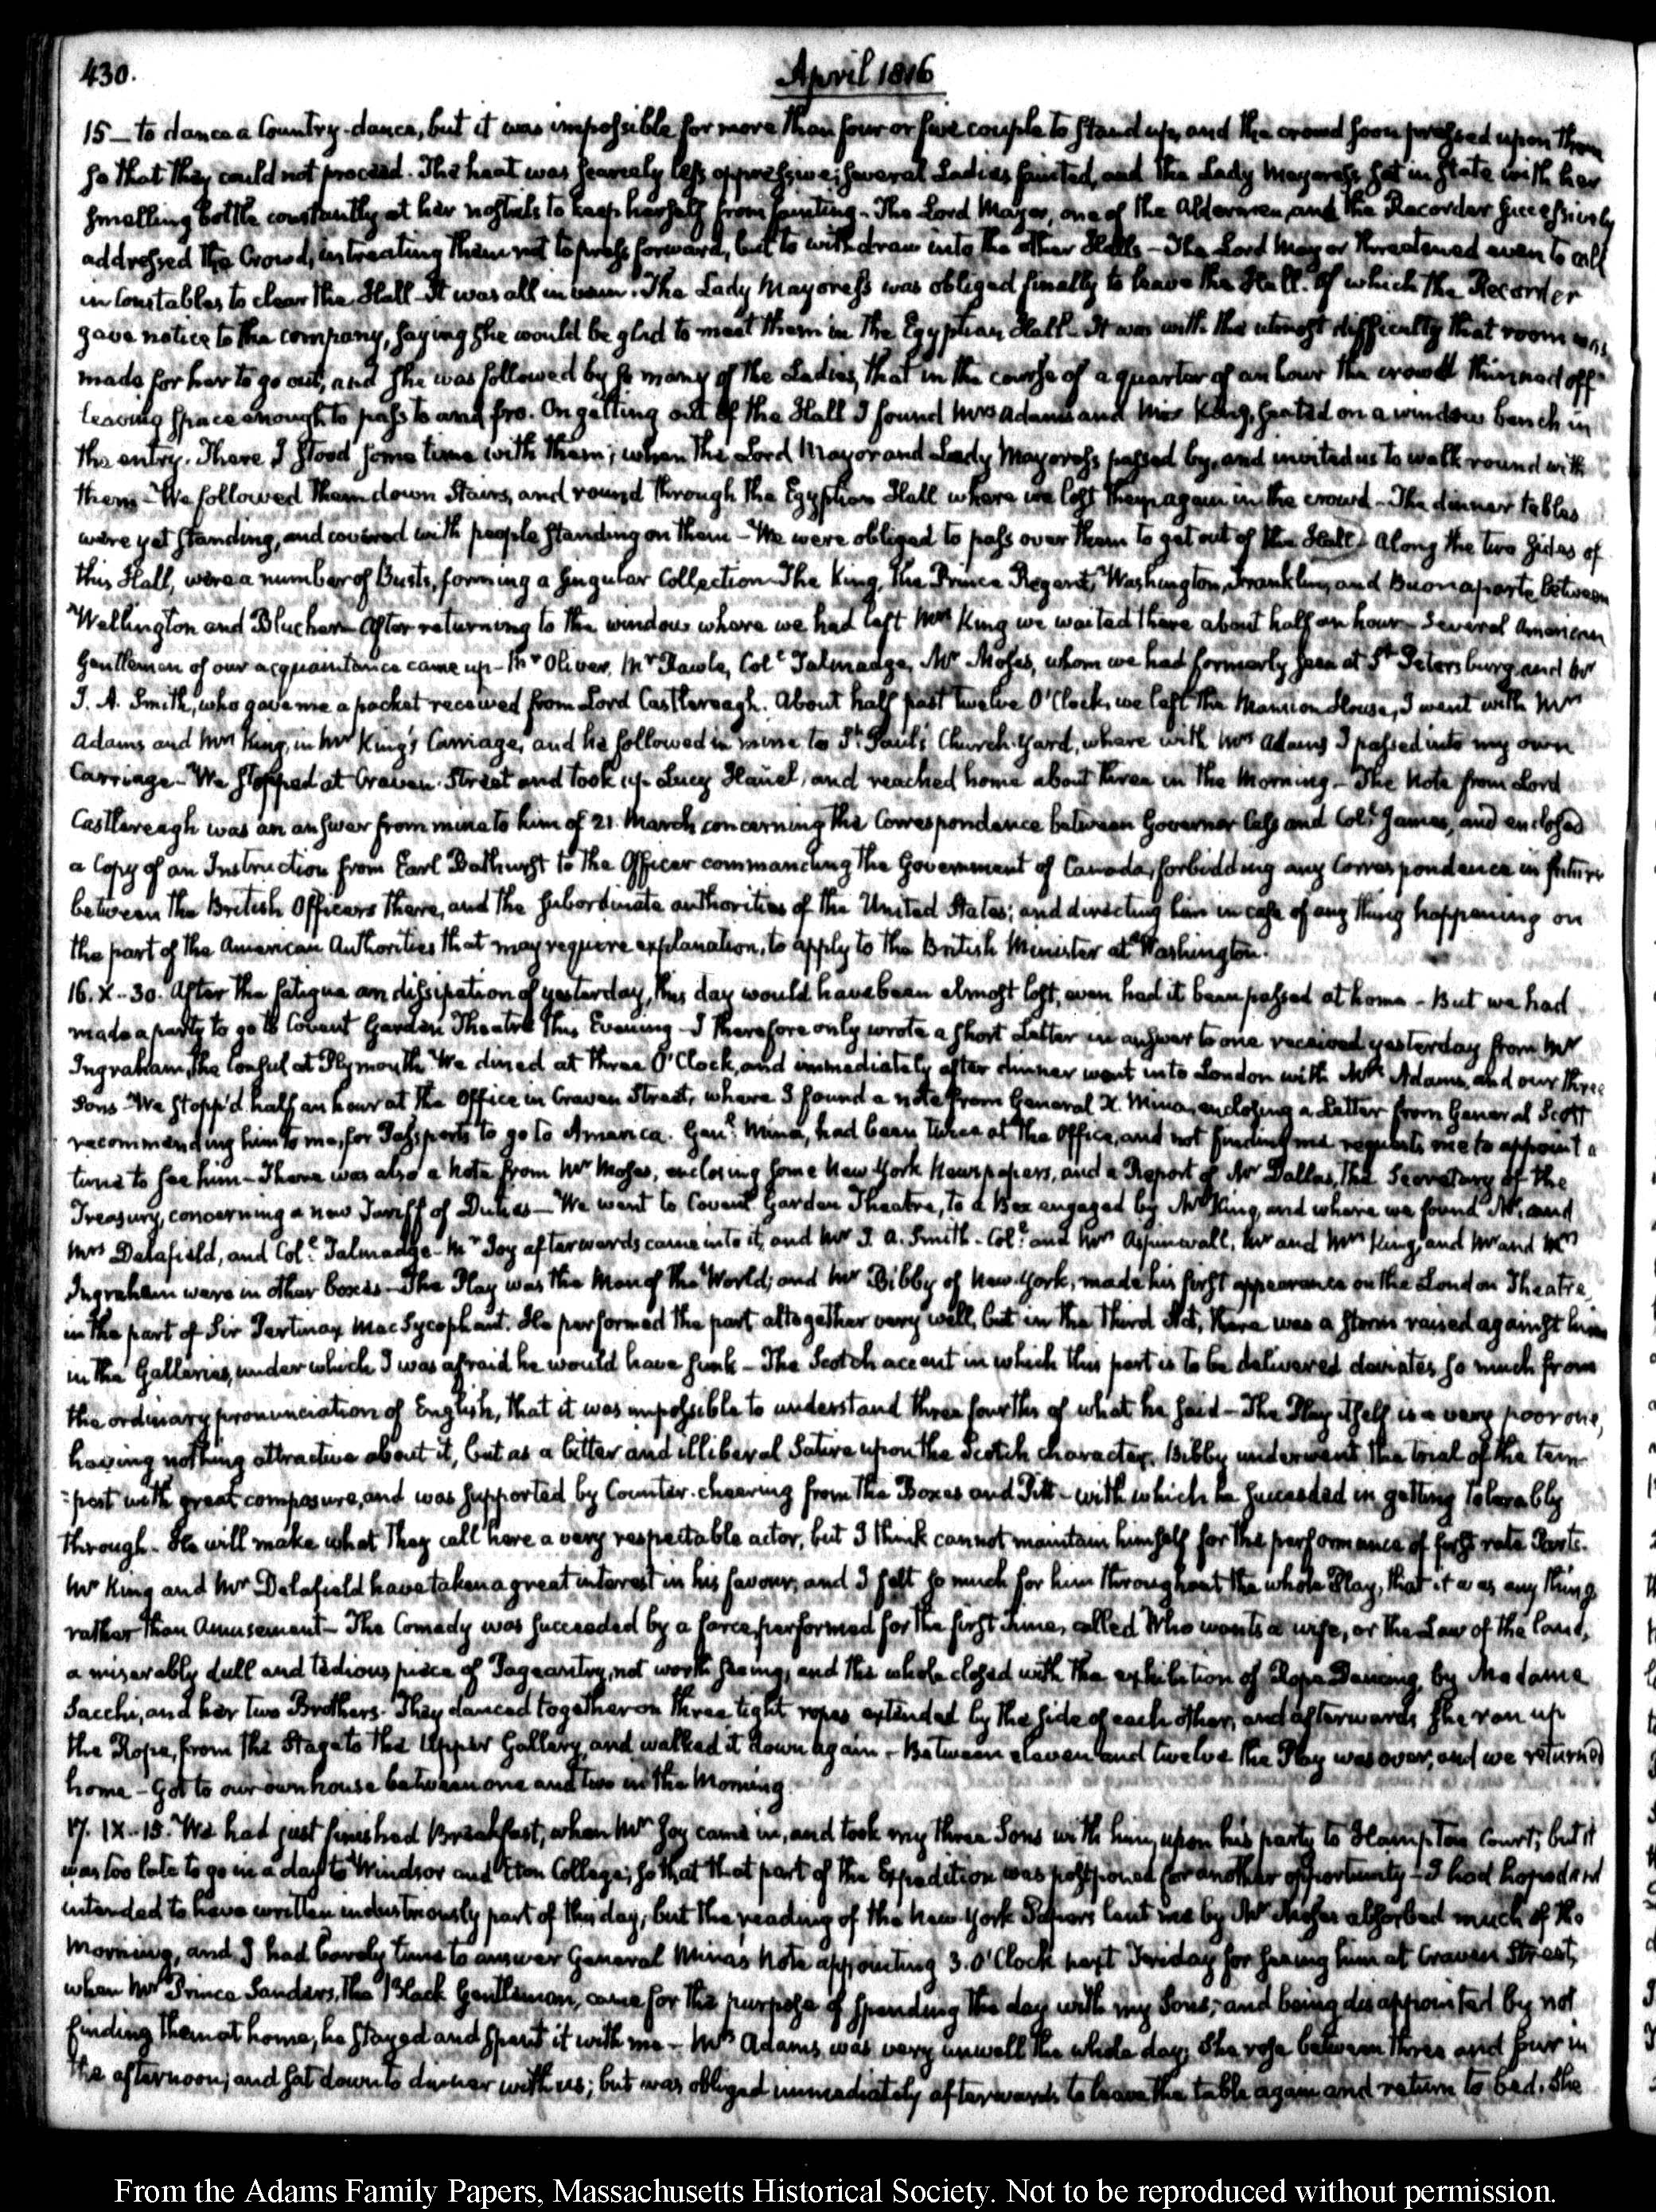 430.
April 1816
15 — to dance a Country-dance, but it was impossible for more than four or five couple to stand up, and the crowd soon pressed upon them
so that they could not proceed. The heat was scarcely less oppressive; several Ladies fainted, and the Lady Mayoress sat in State with her
smelling bottle constantly at her nostrils to keep herself from fainting. The Lord Mayor, one of the Aldermen, and the Recorder successively
addressed the Crowd, intreating them not to press forward, but to withdraw into the other Halls — The Lord Mayor threatened even to call
in Constables to clear the Hall. It was all in vain. The Lady Mayoress was obliged finally to leave the Hall. Of which the Recorder
gave notice to the company, saying she would be glad to meet them in the Egyptian Hall. It was with the utmost difficulty that room was
made for her to go out, and she was followed by so many of the Ladies, that in the course of a quarter of an hour the crowd thinned off
leaving space enough to pass to and fro. On getting out of the Hall I found Mrs Adams and Mrs King, seated on a window bench in
the entry. There I stood some time with them; when the Lord Mayor and Lady Mayoress passed by, and invited us to walk round with
them — We followed them down Stairs, and round through the Egyptian Hall where we lost them again in the crowd — The dinner tables
were yet standing, and covered with people standing on them — We were obliged to pass over them to get out of the Hall. Along the two sides of
this Hall, were a number of Busts, forming a singular Collection. The King, the Prince Regent, Washington, Franklin, and Buonaparte between
Wellington and Blucher — After returning to the window where we had left Mrs King we waited there about half an hour — Several American
Gentlemen of our acquaintance came up — Mr Oliver, Mr Fawle, Coll. Talmadge, Mr Moses, whom we had formerly seen at St Petersburg, and Mr
J. A. Smith, who gave me a packet received from Lord Castlereagh. About half past twelve O'Clock, we left the Mansion House, I went with Mrs
Adams and Mrs King, in Mr King's Carriage, and he followed in mine to St Paul's Church-Yard, where with Mrs Adams I passed into my own
Carriage — We stopped at Craven Street and took up Lucy Hanel, and reached home about three in the Morning — The Note from Lord
Castlereagh was an answer from mine to him of 21 March concerning the Correspondence between Governor Cass and Coll. James, and enclosed
a Copy of an Instruction from Earl Bathurst to the Officer commanding the Government of Canada, forbidding any Correspondence in future
between the British Officers there, and the subordinate authorities of the United States; and directing him in case of any thing happening on
the part of the American Authorities that may require explanation, to apply to the British Minister at Washington.
16. X-30. After the fatigue an dissipation of yesterday, this day would have been almost lost, even had it been passed at home — But we had
made a party to go to Covent Garden Theatre this Evening — I therefore only wrote a short Letter in answer to one received yesterday from Mr
Ingraham, the Consul at Plymouth. We dined at three O'Clock, and immediately after dinner went into London with Mrs Adams, and our three
Sons — We stopp'd half an hour at the Office in Craven Street, where I found a note from General X. Mina, enclosing a Letter from General Scott
recommending him to me, for Passports to go to America. Genl. Mina, had been twice at the Office, and not finding me requests me to appoint a
time to see him — There was also a Note from Mr Moses, enclosing some New York Newspapers, and a Report of Mr Dallas, the Secretary of the
Treasury, concerning a new Tariff of Duties — We went to Covent Garden Theatre, to a Box engaged by Mr King, and where we found Mr. and
Mrs Delafield, and Coll. Talmadge — Mr Joy afterwards came into it, and Mr J. A. Smith — Coll. and Mrs Aspinwall, Mr and Mrs King, and Mr and Mrs
Ingraham were in other boxes — The Play was the Man of the World; and Mr Bibby of New York, made his first appearance on the London Theatre,
in the part of Sir Pertinax MacSycophant. He performed the part altogether very well, but in the third Act, there was a storm raised against him
in the Galleries, under which I was afraid he would have sunk — The Scotch accent in which this part is to be delivered deviates so much from
the ordinary pronunciation of English, that it was impossible to understand three fourths of what he said — The Play itself is a very poor one,
having nothing attractive about it, but as a bitter and illiberal Satire upon the Scotch character. Bibby underwent the trial of the tem-
:pest with great composure, and was supported by Counter-cheering from the Boxes and Pitt — with which he succeeded in getting tolerably
through. He will make what they call here a very respectable actor, but I think cannot maintain himself for the performance of first rate Parts.
Mr King and Mr Delafield have taken a great interest in his favour, and I felt so much for him throughout the whole Play, that it was any thing
rather than Amusement — The Comedy was succeeded by a farce, performed for the first time, called Who wants a wife, or the Law of the land,
a miserably dull and tedious piece of Pageantry, not worth seeing; and the whole closed with the exhibition of Rope Dancing, by Madame
Sacchi, and her two Brothers. They danced together on three tight ropes extended by the side of each other, and afterwards she ran up
the Rope, from the Stage to the Upper Gallery, and walked it down again — Between eleven and twelve the Play was over, and we returned
home — Got to our own house between one and two in the Morning.
17. IX-15. We had just finished Breakfast, when Mr Joy came in, and took my three Sons with him, upon his party to Hampton Court; but it
was too late to go in a day to Windsor and Eton College; so that that part of the Expedition was postponed for another opportunity — I had hoped and
intended to have written industriously part of this day; but the reading of the New York Papers lent me by Mr Moses absorbed much of the
Morning, and I had barely time to answer General Mina's Note appointing 3. O'Clock next Friday for seeing him at Craven Street,
when Mr Prince Sanders, the Black Gentleman, came for the purpose of spending the day with my Sons; and being disappointed by not
finding them at home, he stayed and spent it with me — Mrs Adams was very unwell the whole day; She rose between three and four in
the afternoon; and sat down to dinner with us; but was obliged immediately afterwards to leave the table again and return to bed. She
From the Adams Family Papers, Massachusetts Historical Society. Not to be reproduced without permission.